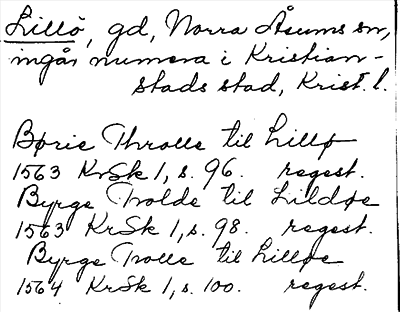 Lillö, gd, Norra Åsums sn,
ingår numera i Kristian-
stads stad, Krist. l.
Børie Throlle til Lillø
1563 KrSk 1, s. 96. regest.
Byrge Trolde til Lildøe
1563 KrSk 1, s. 98. regest.
Byrge Trolle til Lilløe
1564 KrSk 1, s. 100. regest.